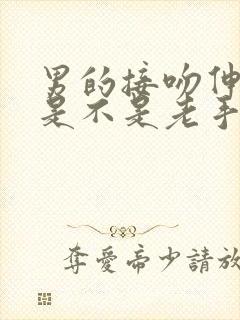 男的接吻伸
是不是老手
奪愛帝少請放